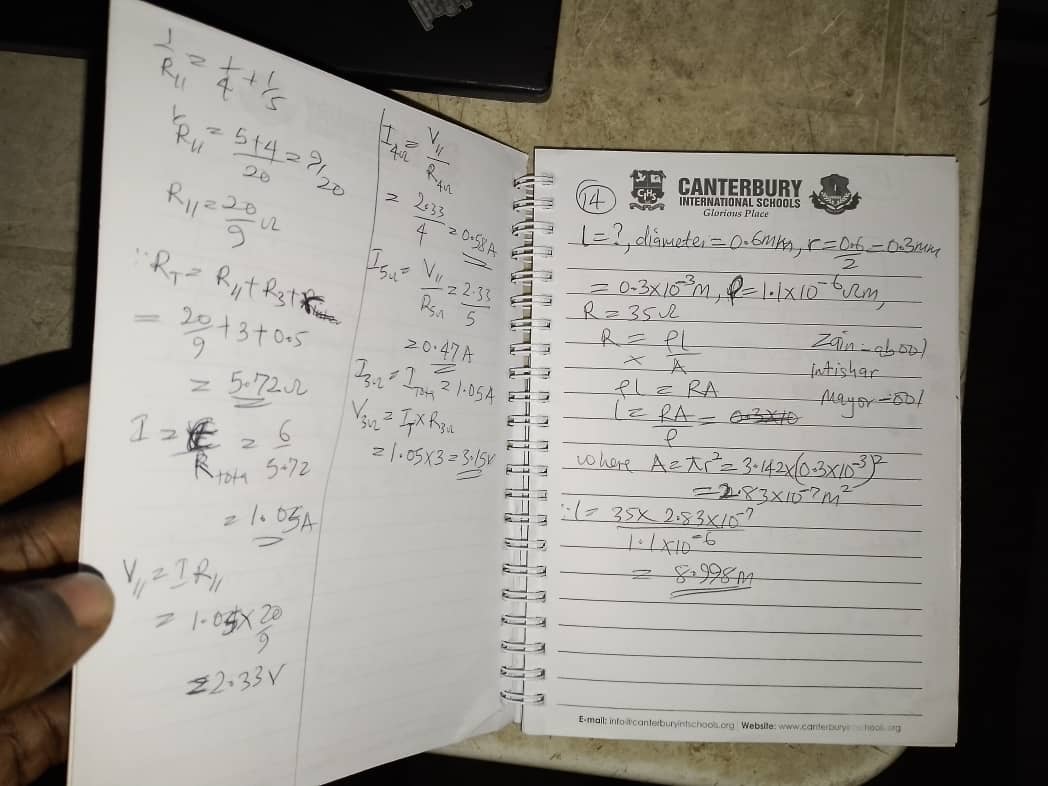 1/R// = 1/4 + 1/5
1/R// = 5+4/20 = 9/20
R// = 20/9 Ω
∵ R_T = R// + R3 +
= 20/9 + 3 + 0.5
= 5.72Ω
I = E/R_total = 6/5.72
= 1.05A
V// = I R//
= 1.05 × 20/9
= 2.33V
I4Ω = V///R4Ω
= 2.33/4 = 0.58A
I5Ω = V///R5Ω = 2.33/5
= 0.47A
I3Ω = I Total = 1.05A
V3Ω = I_T × R3Ω
= 1.05×3 = 3.15V
14
CIHS
CANTERBURY
INTERNATIONAL SCHOOLS
Glorious Place
l=?, diameter = 0.6mm, r = 0.6/2 = 0.3mm
= 0.3×10⁻³m, ρ = 1.1×10⁻⁶Ωm,
R = 35Ω
R = ρl/A
Zain-ab 001
Intishar
Mayor-001
ρl = RA
l = RA/ρ = 0.3×10
where A = πr² = 3.142×(0.3×10⁻³)²
= 2.83×10⁻⁷m²
∴ l = 35 × 2.83×10⁻⁷/1.1×10⁻⁶
= 8.998m
E-mail: info@canterburyintschools.org Website: www.canterburyintschools.org